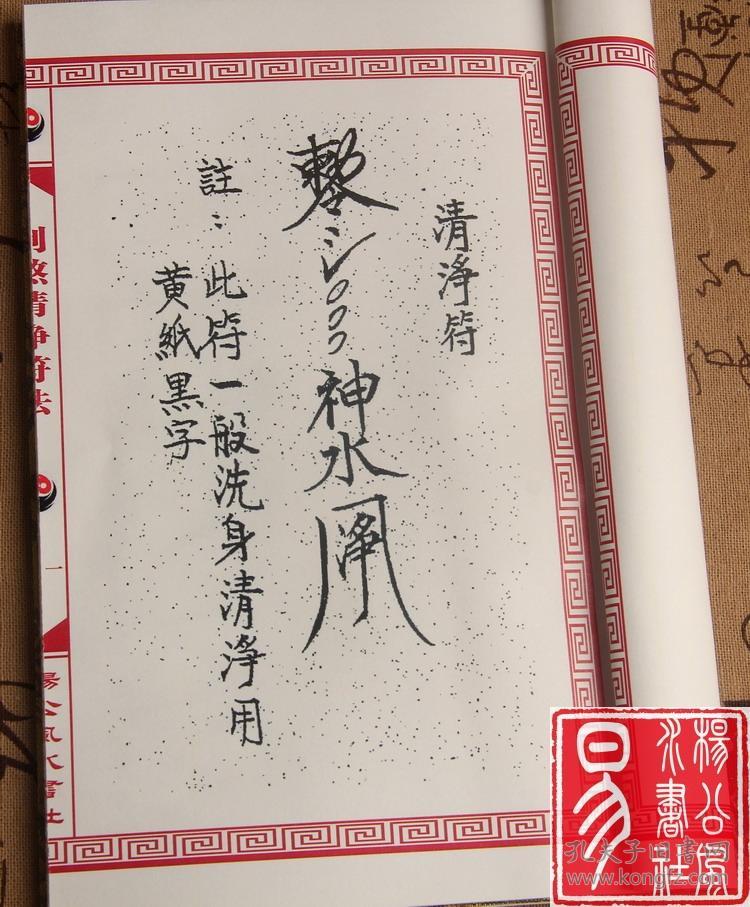 清淨符
敕令
神水
淨
註：此符一般洗身清淨用
黄紙黑字
制煞清净符法
一
楊公風水書社
楊公风水書社
易
孔夫子旧书网
www.kongfz.com